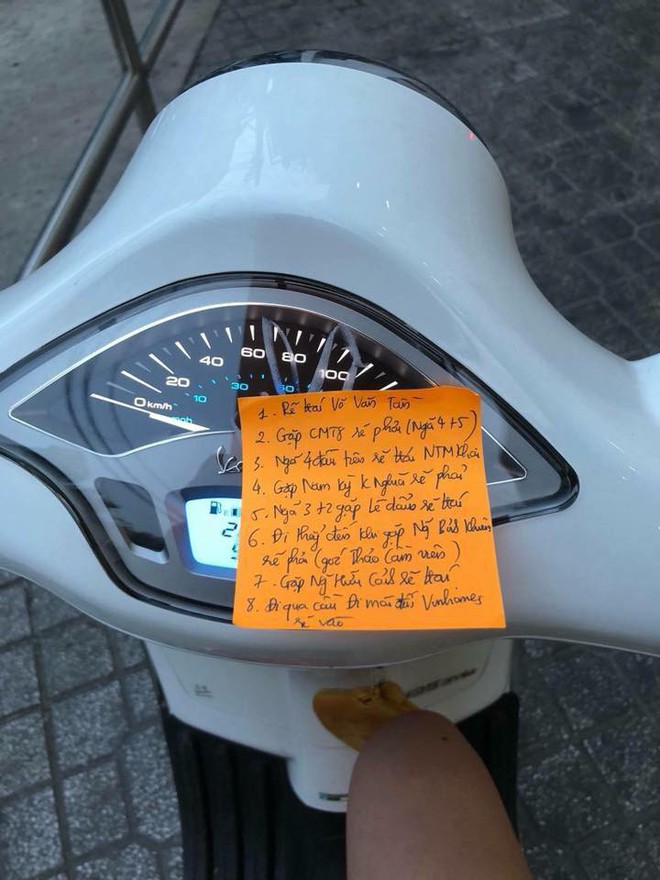 0 km/h
20
40
60
80
100
mph
10
30
1. Rẽ trái Võ Văn Tần
2. Gặp CMT8 rẽ phải (Ngã 4+5)
3. Ngã 4 đầu tiên rẽ trái NTM Khai
4. Gặp Nam Kỳ K Nghĩa rẽ phải
5. Ngã 3 +2 gặp Lê Duẩn rẽ trái
6. Đi thẳng đến khi gặp Ng Bỉnh Khiêm
rẽ phải (góc Thảo Cầm Viên)
7. Gặp Ng Hữu Cảnh rẽ trái
8. Đi qua cầu Đi mãi đến Vinhomes
rẽ vào